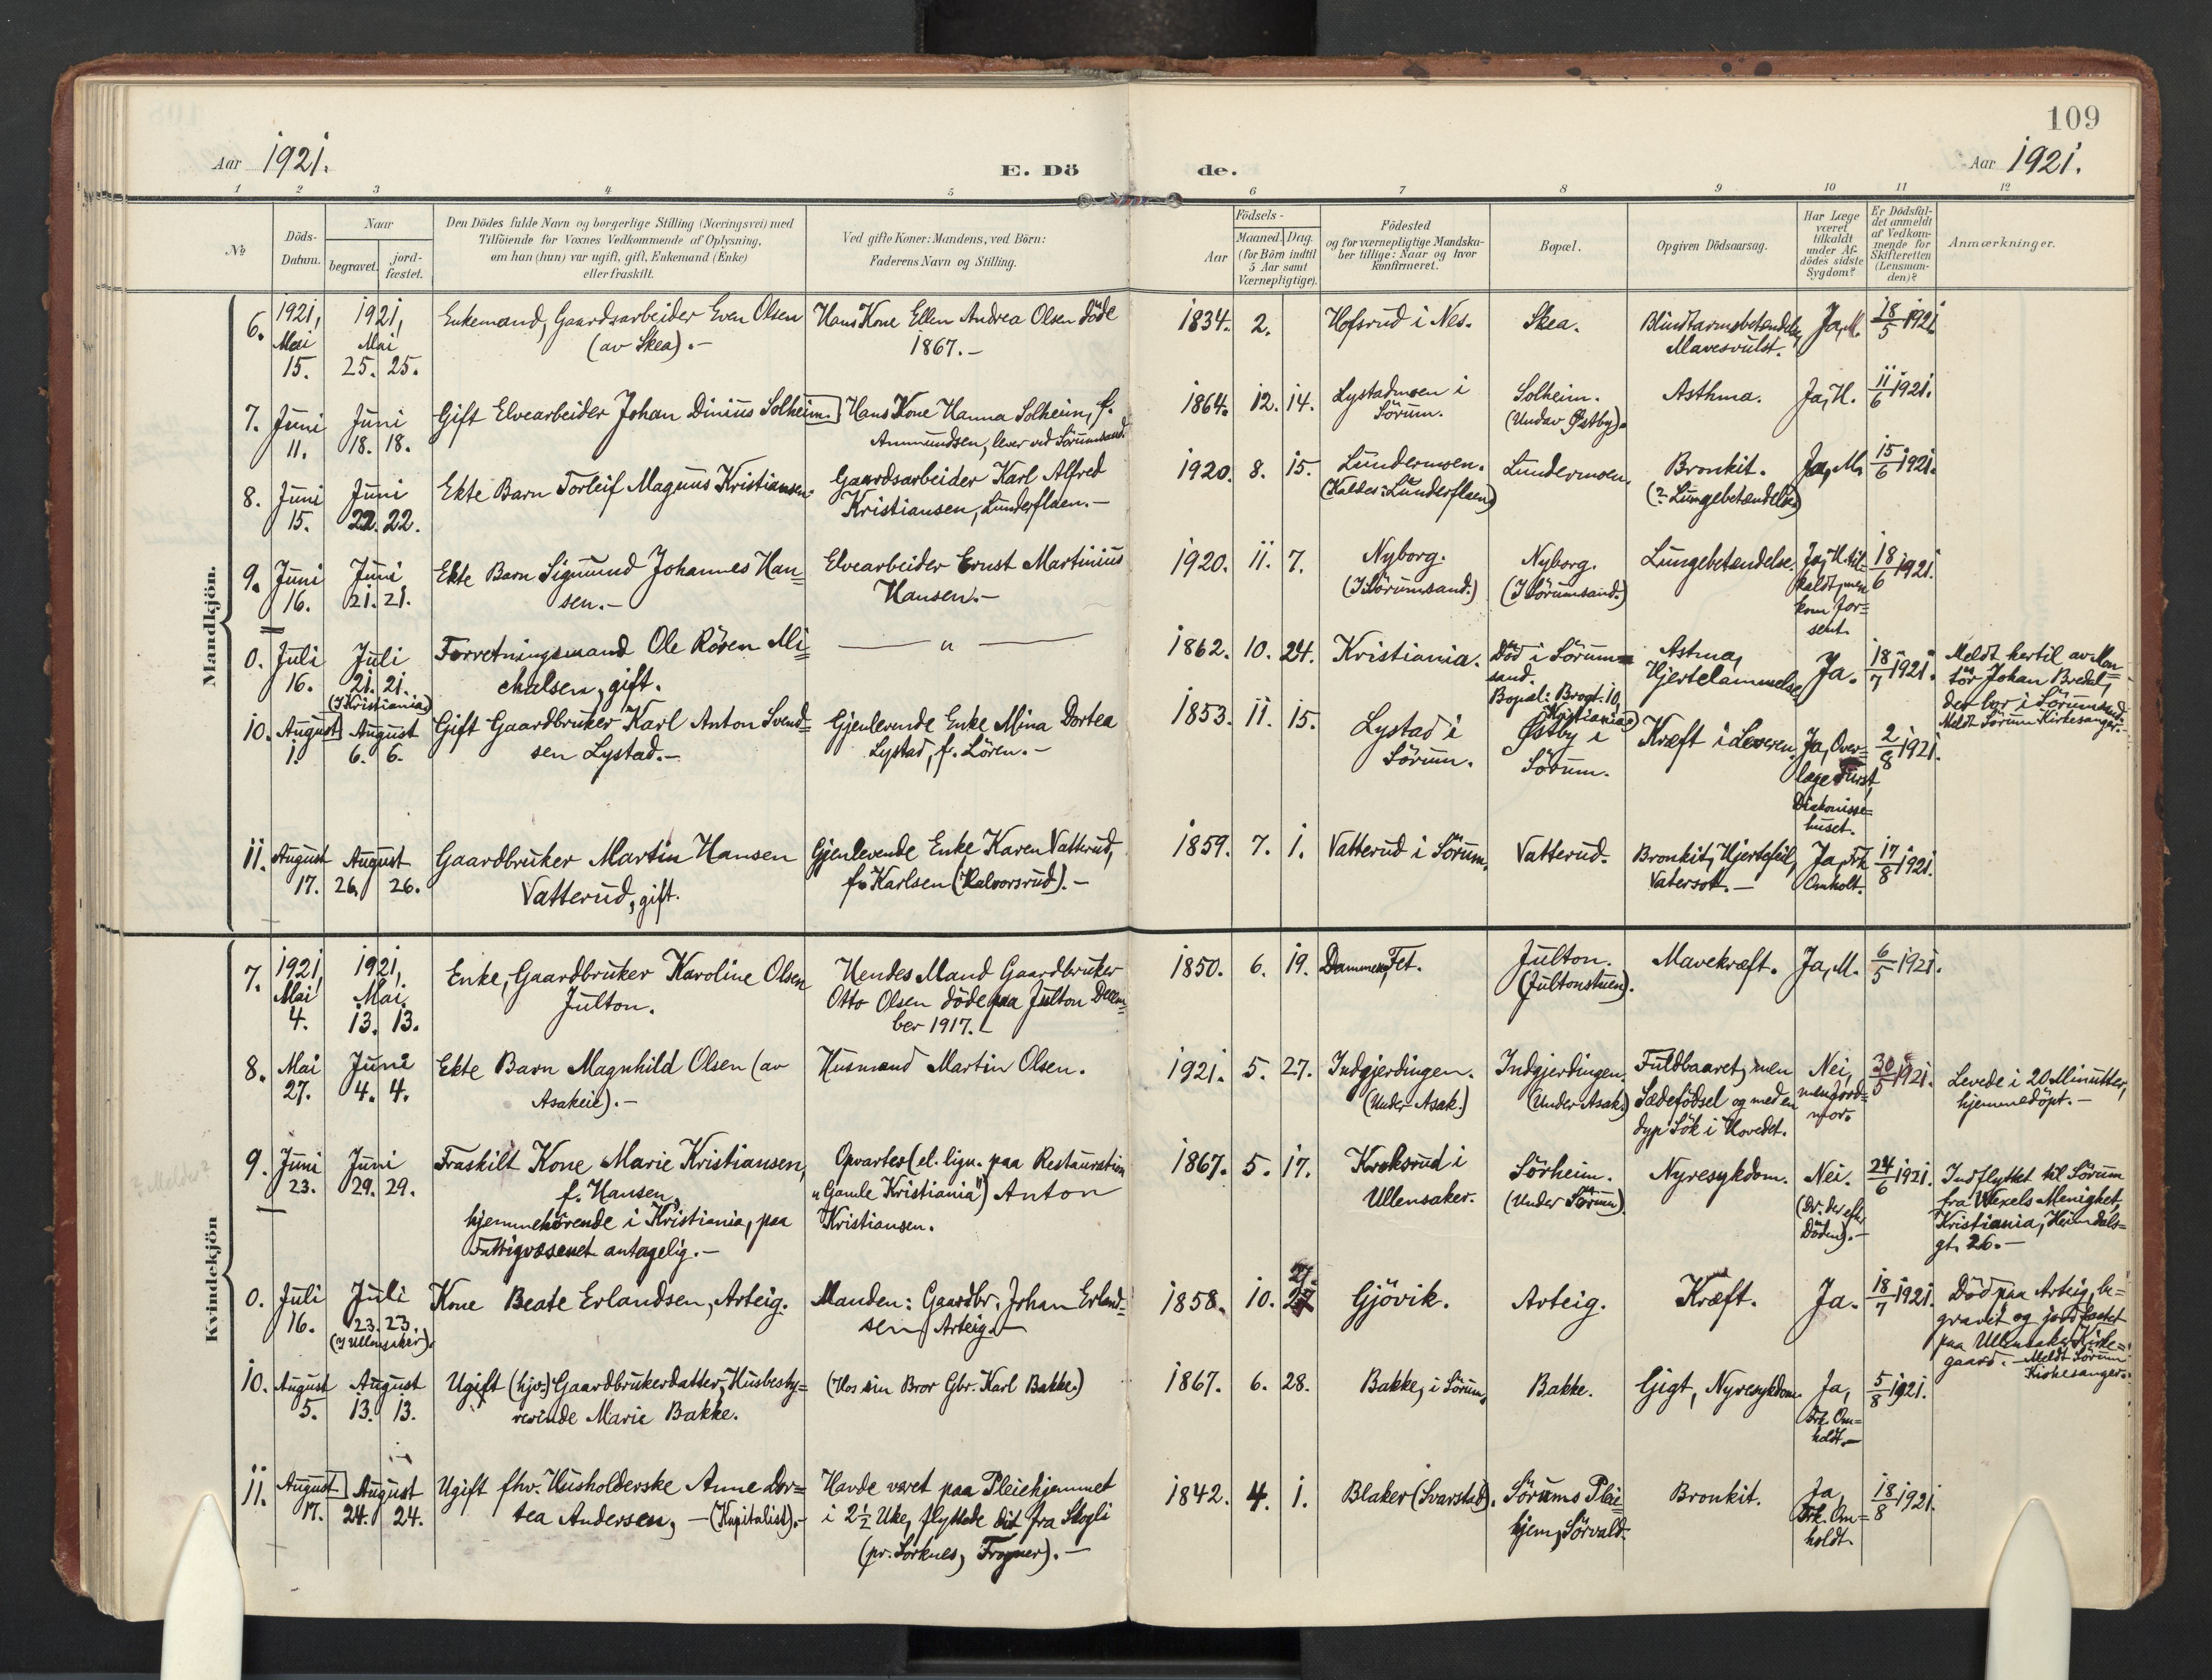 109
Aar 1921.
E. Döde.
Aar 1921.
1 2 3 4 5 6 7 8 9 10 11 12
No
Döds-Datum.
Naar
begravet.
jordfæstet.
Den Dödes fulde Navn og borgerlige Stilling (Næringsvei) med
Tilföiende for Voxnes Vedkommende af Oplysning,
om han (hun) var ugift, gift, Enkemand (Enke)
eller fraskilt.
Ved gifte Koner: Mandens, ved Börn:
Faderens Navn og Stilling.
Födsels-
Aar
Maaned. Dag.
(for Börn indtil
5 Aar samt
Værnepligtige).
Födested
og for værnepligtige Mandska-
ber tillige: Naar og hvor
konfirmeret.
Bopæl.
Opgiven Dödsaarsag.
Har Læge
været
tilkaldt
under Af-
dödes sidste
Sygdom?
Er Dödsfal-
det anmeldt
af Vedkom-
mende for
Skifteretten
(Lensman-
den)?
Anmærkninger.
Mandkjön.
6. 1921, Mai 15.
1921, Mai 25. 25.
Enkemand, Gaardsarbeider Even Olsen
(av Skea).-
Hans Kone Ellen Andrea Olsen döde
1867.-
1834. 2.
Hofsrud i Nes.
Skea.
Blindtarmsbetændelse,
Mavesvulst.
Ja, M.
18/5 1921.
7. Juni 11.
Juni 18. 18.
Gift Elvearbeider Johan Dinius Solheim.
Hans Kone Hanna Solheim, f.
Ammundsen, lever ved Sörumsand.
1864. 12. 14.
Lystadmoen i
Sörum.
Solheim.
(Undav Østby).
Asthma.
Ja, H.
11/6 1921.
8. Juni 15.
Juni 22. 22.
Ekte Barn Torleif Magnus Kristiansen.
Gaardsarbeider Karl Alfred
Kristiansen, Lunderflaen.-
1920. 8. 15.
Lundermoen.
(Kaldes: Lunderflaen)
Lundermoen.
Bronkit.
(? Lungebetændelse)
Ja, M.
15/6 1921.
9. Juni 16.
Juni 21. 21.
Ekte Barn Sigmund Johannes Han=
sen.-
Elvearbeider Ernst Martinius
Hansen.-
1920. 11. 7.
Nyborg.
(I Sörumsand.)
Nyborg.
(I Sörumsand.)
Lungebetændelse.
Ja, H. til-
kaldt, men
kom for=
sent.
18/6 1921.
0. Juli 16.
Juli 21. 21.
(I Kristiania)
Forretningsmand Ole Rören Mi=
chalsen, gift.
— " —
1862. 10. 24.
Kristiania.
Död i Sörum=
sand.
Bopæl: Brogt. 10,
Kristiania)
Astma,
Hjertelammelse
Ja.
18/7 1921.
Meldt hertil av Mon=
tör Johan Bredal,
der bor i Sörumsand.
Meldt Sörum Kirkesanger.-
10. August 1.
August 6. 6.
Gift Gaardbruker Karl Anton Svend=
sen Lystad.-
Gjenlevende Enke Mina Dortea
Lystad, f. Lören.-
1853. 11. 15.
Lystad i
Sörum.
Østby i
Sörum.
Kræft i Leveren.
Ja, Over=
læge Fürst,
Diakonisse=
huset.
2/8 1921.
11. August 17.
August 26. 26.
Gaardbruker Martin Hansen
Vatterud, gift.
Gjenlevende Enke Karen Vatterud,
f. Karlsen (Halvorsrud).-
1859. 7. 1.
Vatterud i Sörum.
Vatterud.
Bronkit, Hjertefeil,
Vatersot.-
Ja, Frk.
Omholt.
17/8 1921.
Kvindekjön
7. 1921, Mai 4.
1921, Mai 13. 13.
Enke, Gaardbruker Karoline Olsen
Julton.
Hendes Mand Gaardbruker
Otto Olsen döde paa Julton Decem=
ber 1917.
1850. 6. 19.
Dammen, Fet.
Julton.
(Jultonstuen).
Mavekræft.
Ja, M.
6/5 1921.
8. Mai 27.
Juni 4. 4.
Ekte Barn Magnhild Olsen (av
Asakeie).-
Husmand Martin Olsen.
1921. 5. 27.
Indgjerdingen.
(Under Asak.)
Indgjerdingen.
(Under Asak.)
Fuldbaaret, men
Sædefödsel og med en
dyp Sök i Hovedet.
Nei,
men Jord=
mor.
30/5 1921.
Levede i 20 Minutter,
hjemmedöpt.-
9. Juni 23.
Juni 29. 29.
Fraskilt Kone Marie Kristiansen,
f. Hansen,
hjemmehörende i Kristiania, paa
Fattigvæsenet antagelig.-
Opvarter (el. lign. paa Restauration
"Gamle Kristiania") Anton
Kristiansen.
1867. 5. 17.
Kroksrud i
Ullensaker.
Sörheim.
(Under Sörum)
Nyresykdom.
Nei.
(Dr. der efter
Döden).-
24/6 1921.
Indflyttet til Sörum
fra Wexels Menighet,
Kristiania, Heimdals=
gt. 26.-
0. Juli 16.
Juli 23. 23.
(I Ullensaker).
Kone Beate Erlandsen, Arteig.
Manden: Gaardbr. Johan Erland=
sen Arteig.-
1858. 10. 27.
Gjövik.
Arteig.
Kræft.
Ja.
18/7 1921.
Död paa Arteig, be=
gravet og jordfæstet
paa Ullensaker Kirke=
gaard.- Meldt Sörum
Kirkesanger.
10. August 5.
August 13. 13.
Ugift (hjv.) Gaardbrukerdatter, Husbesty=
rerinde Marie Bakke.
(Hos sin Bror Gbr. Karl Bakke.)
1867. 6. 28.
Bakke, i Sörum.
Bakke.
Gigt, Nyresykdom.
Ja,
Frk. Om=
holdt.-
5/8 1921.
11. August 17.
August 24. 24.
Ugift fhv. Husholderske Anne Dor=
tea Andersen, - (Kapitalist).-
Havde været paa Pleiehjemmet
i 2½ Uke, flyttede dit fra Skogli
(pr. Sorknes, Frogner).-
1842. 4. 1.
Blaker (Svarstad).
Sörums Pleie=
hjem, Sörvald.
Bronkit.
Ja,
Frk. Om=
holdt.
18/8 1921.